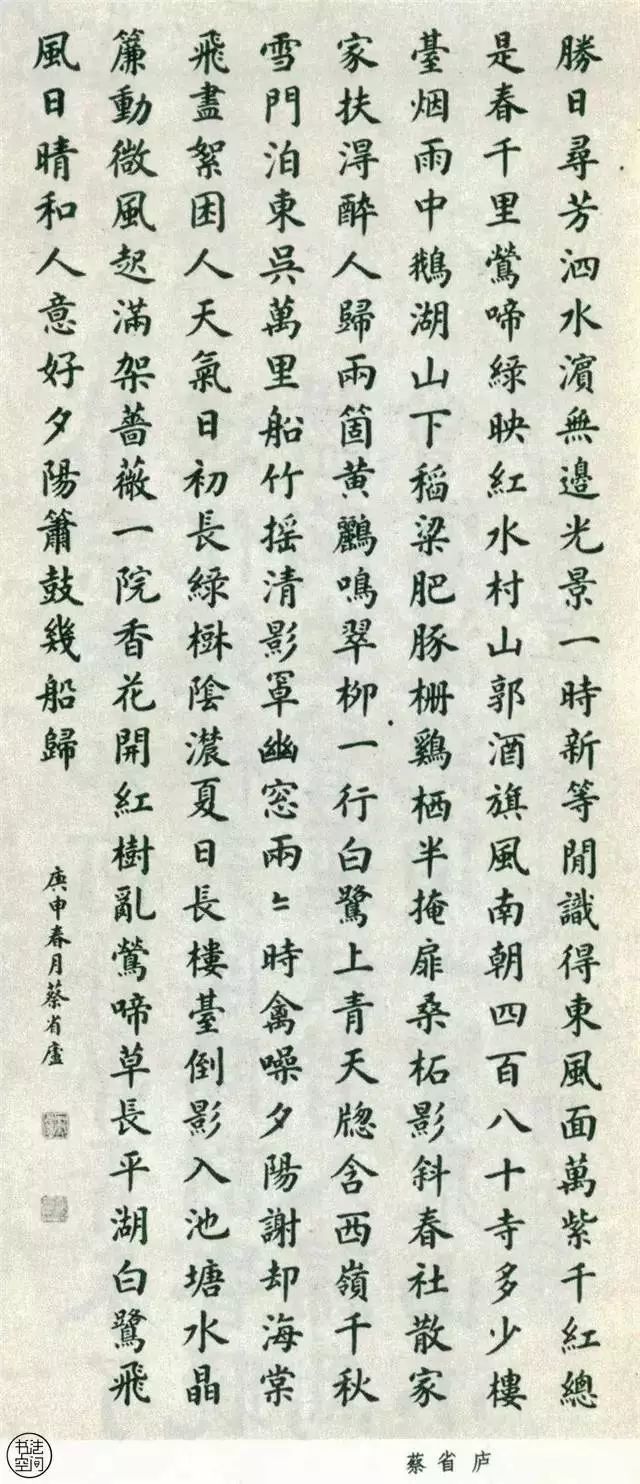 勝日尋芳泗水濵無邊光景一時新等閒識得東風面萬紫千紅總
是春千里鶯啼綠映紅水村山郭酒旗風南朝四百八十寺多少樓
臺烟雨中鵝湖山下稻粱肥豚栅鷄栖半掩扉桑柘影斜春社散家
家扶淂醉人歸兩箇黄鸝鳴翠柳一行白鷺上青天牎含西嶺千秋
雪門泊東吳萬里船竹摇清影罩幽窓兩〻時禽噪夕陽謝却海棠
飛盡絮困人天氣日初長綠樹陰濃夏日長樓臺倒影入池塘水晶
簾動微風起滿架蔷薇一院香花開紅樹亂鶯啼草長平湖白鷺飛
風日晴和人意好夕陽簫鼓幾船歸
庚申春月蔡省廬
蔡省庐
书法空间